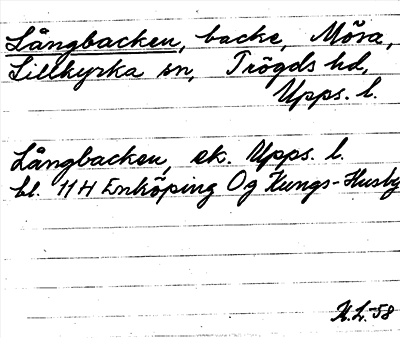 Långbacken, backe, Möra,
Lillkyrka sn, Trögds hd,
Upps. l.
Långbacken, ek. Upps. l.
bl. 11 H Enköping Og Kungs-Husby
K.L.-58